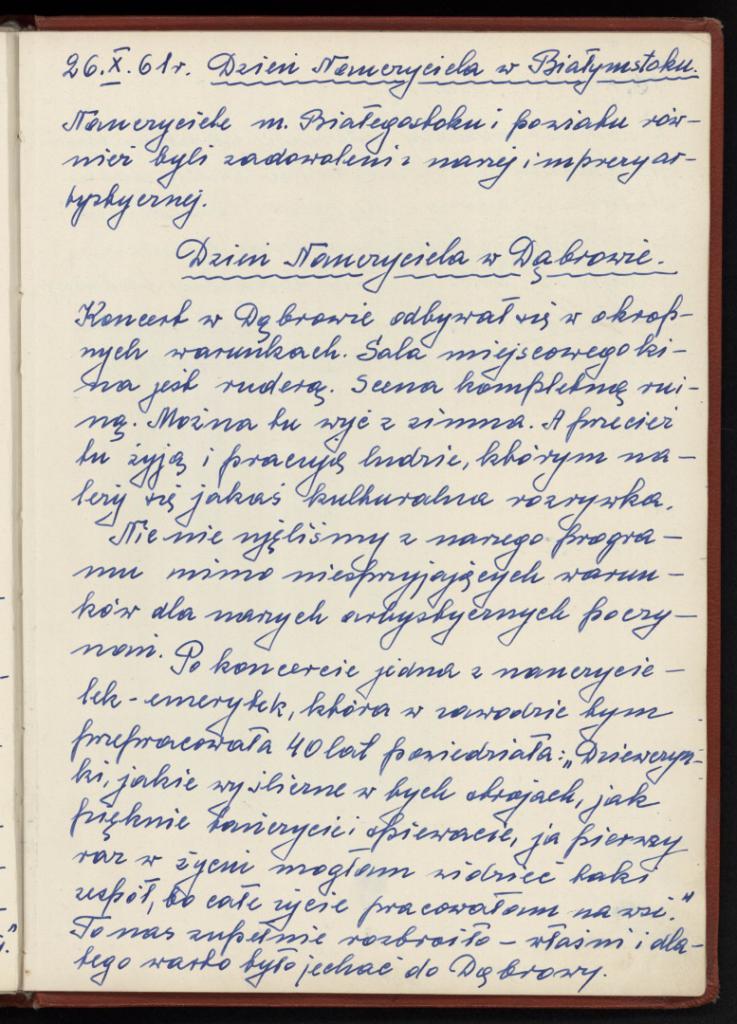 26.X.61r. Dzień Nauczyciela w Białymstoku.
Nauczyciele m. Białegostoku i powiatu rów-
nież byli zadowoleni z naszej imprezy ar-
tystycznej.
Dzień Nauczyciela w Dąbrowie.
Koncert w Dąbrowie odbywał się w okrop-
nych warunkach. Sala miejscowego ki-
na jest ruderą. Scena kompletną rui-
ną. Można tu wyć z zimna. A przecież
tu żyją i pracują ludzie, którym na-
leży się jakaś kulturalna rozrywka.
Nic nie ujęliśmy z naszego progra-
mu mimo niesprzyjających warun-
ków dla naszych artystycznych poczy-
nań. Po koncercie jedna z nauczycie-
lek-emerytek, która w zawodzie tym
przepracowała 40 lat powiedziała: „Dziewczyn-
ki, jakie wy śliczne w tych strojach, jak
pięknie tańczycie i śpiewacie, ja pierwszy
raz w życiu mogłam widzieć taki
zespół, bo całe życie pracowałam na wsi."
To nas zupełnie rozbroiło - właśni i dla-
tego warto było jechać do Dąbrowy.